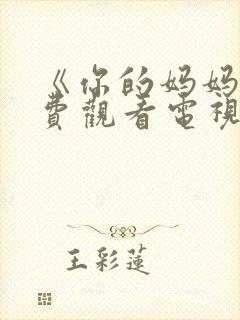 《你的妈妈
費觀看電視
王彩蓮